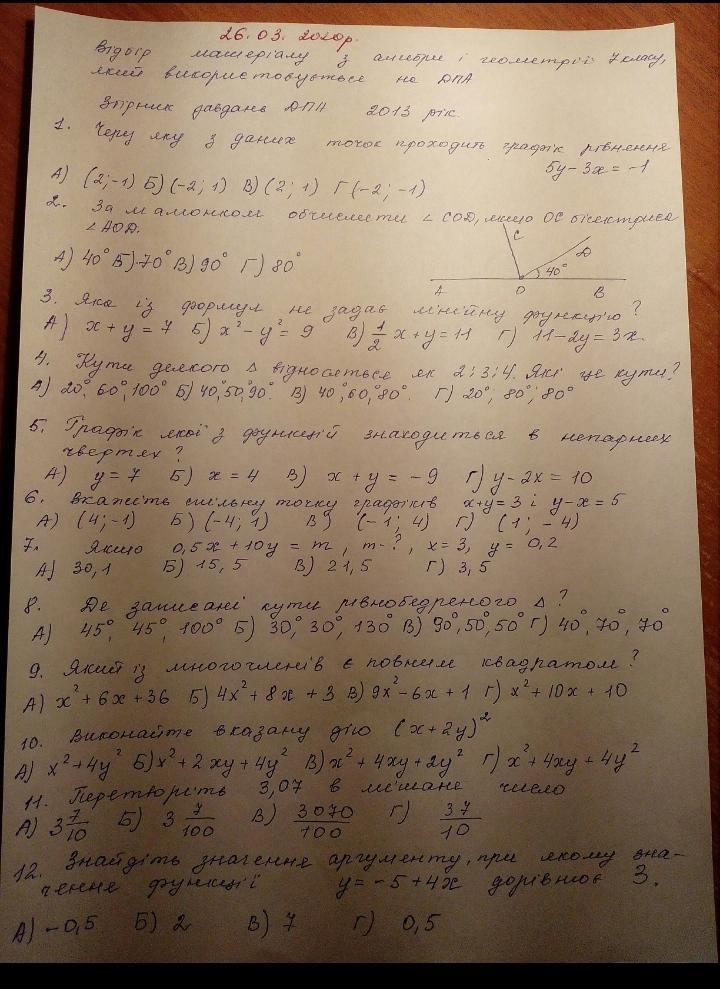 26.03.2020р.
Відбір матеріалу з алгебри і геометрії 7 класу,
який використовується на ДПА
Збірник давдань ДПА 2013 рік.
1. Черу яку з даних точок проходить графік рівнення
5y-3x=-1
А) (2;-1) Б) (-2; 1) В) (2; 1) Г (-2; -1)
2. За малюнком обчислити ∠ COD, якщо OC бісектриса
∠AOD.
C
D
А) 40° Б) 70° В) 90° Г) 80°
40°
A O B
3. Яка із формул не задає лінійну функцію?
А) x + y = 7 Б) x² - y² = 9 В) 1/2 x + y = 11 Г) 11-2y = 3x.
4. Кути деякого Δ відносяться як 2:3:4. Які це кути?
А) 20°, 60°, 100° Б) 40°, 50°, 90°. В) 40°, 60°, 80°. Г) 20°; 80°; 80°
5. Графік якої з функцій знаходиться в непарних
чвертях?
А) y = 7 Б) x = 4 В) x + y = -9 Г) y - 2x = 10
6. Вкажіть спільну точку графіків x+y=3 і y-x=5
А) (4; -1) Б) (-4; 1) В) (-1; 4) Г) (1; -4)
7. Якщо 0,5x + 10y = m, m-?, x=3, y = 0,2
А) 30,1 Б) 15,5 В) 21,5 Г) 3,5
8. Де записані кути рівнобедреного Δ?
А) 45°, 45°, 100° Б) 30°, 30°, 130° В) 90°, 50°, 50° Г) 40°, 70°, 70°
9. Який із многочленів є повним квадратом?
А) x² + 6x + 36 Б) 4x² + 8x + 3 В) 9x² - 6x + 1 Г) x² + 10x + 10
10. Виконайте вказану дію (x+2y)²
А) x² + 4y² Б) x² + 2xy + 4y² В) x² + 4xy + 2y² Г) x² + 4xy + 4y²
11. Перетворіть 3,07 в мішане число
А) 3 7/10 Б) 3 7/100 В) 3070/100 Г) 37/10
12. Знайдіть значення аргументу, при якому зна-
чення функції y = -5 + 4x дорівнює 3.
А) -0,5 Б) 2 В) 7 Г) 0,5